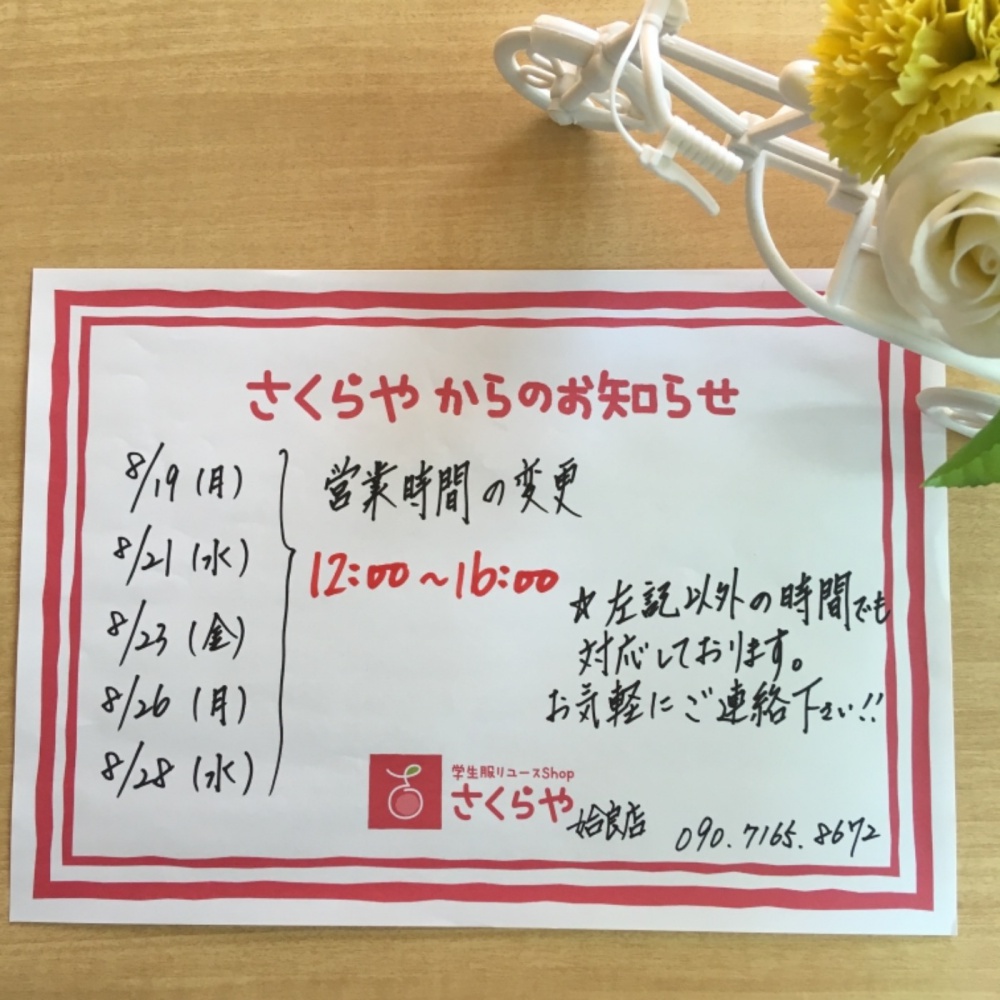 さくらや からのお知らせ
8/19 (月)
8/21 (水)
8/23 (金)
8/26 (月)
8/28 (水)
営業時間の変更
12:00~16:00
☆左記以外の時間でも
対応しております。
お気軽にご連絡下さい!!
学生服リユースShop
さくらや 姶良店
090.7165.8672